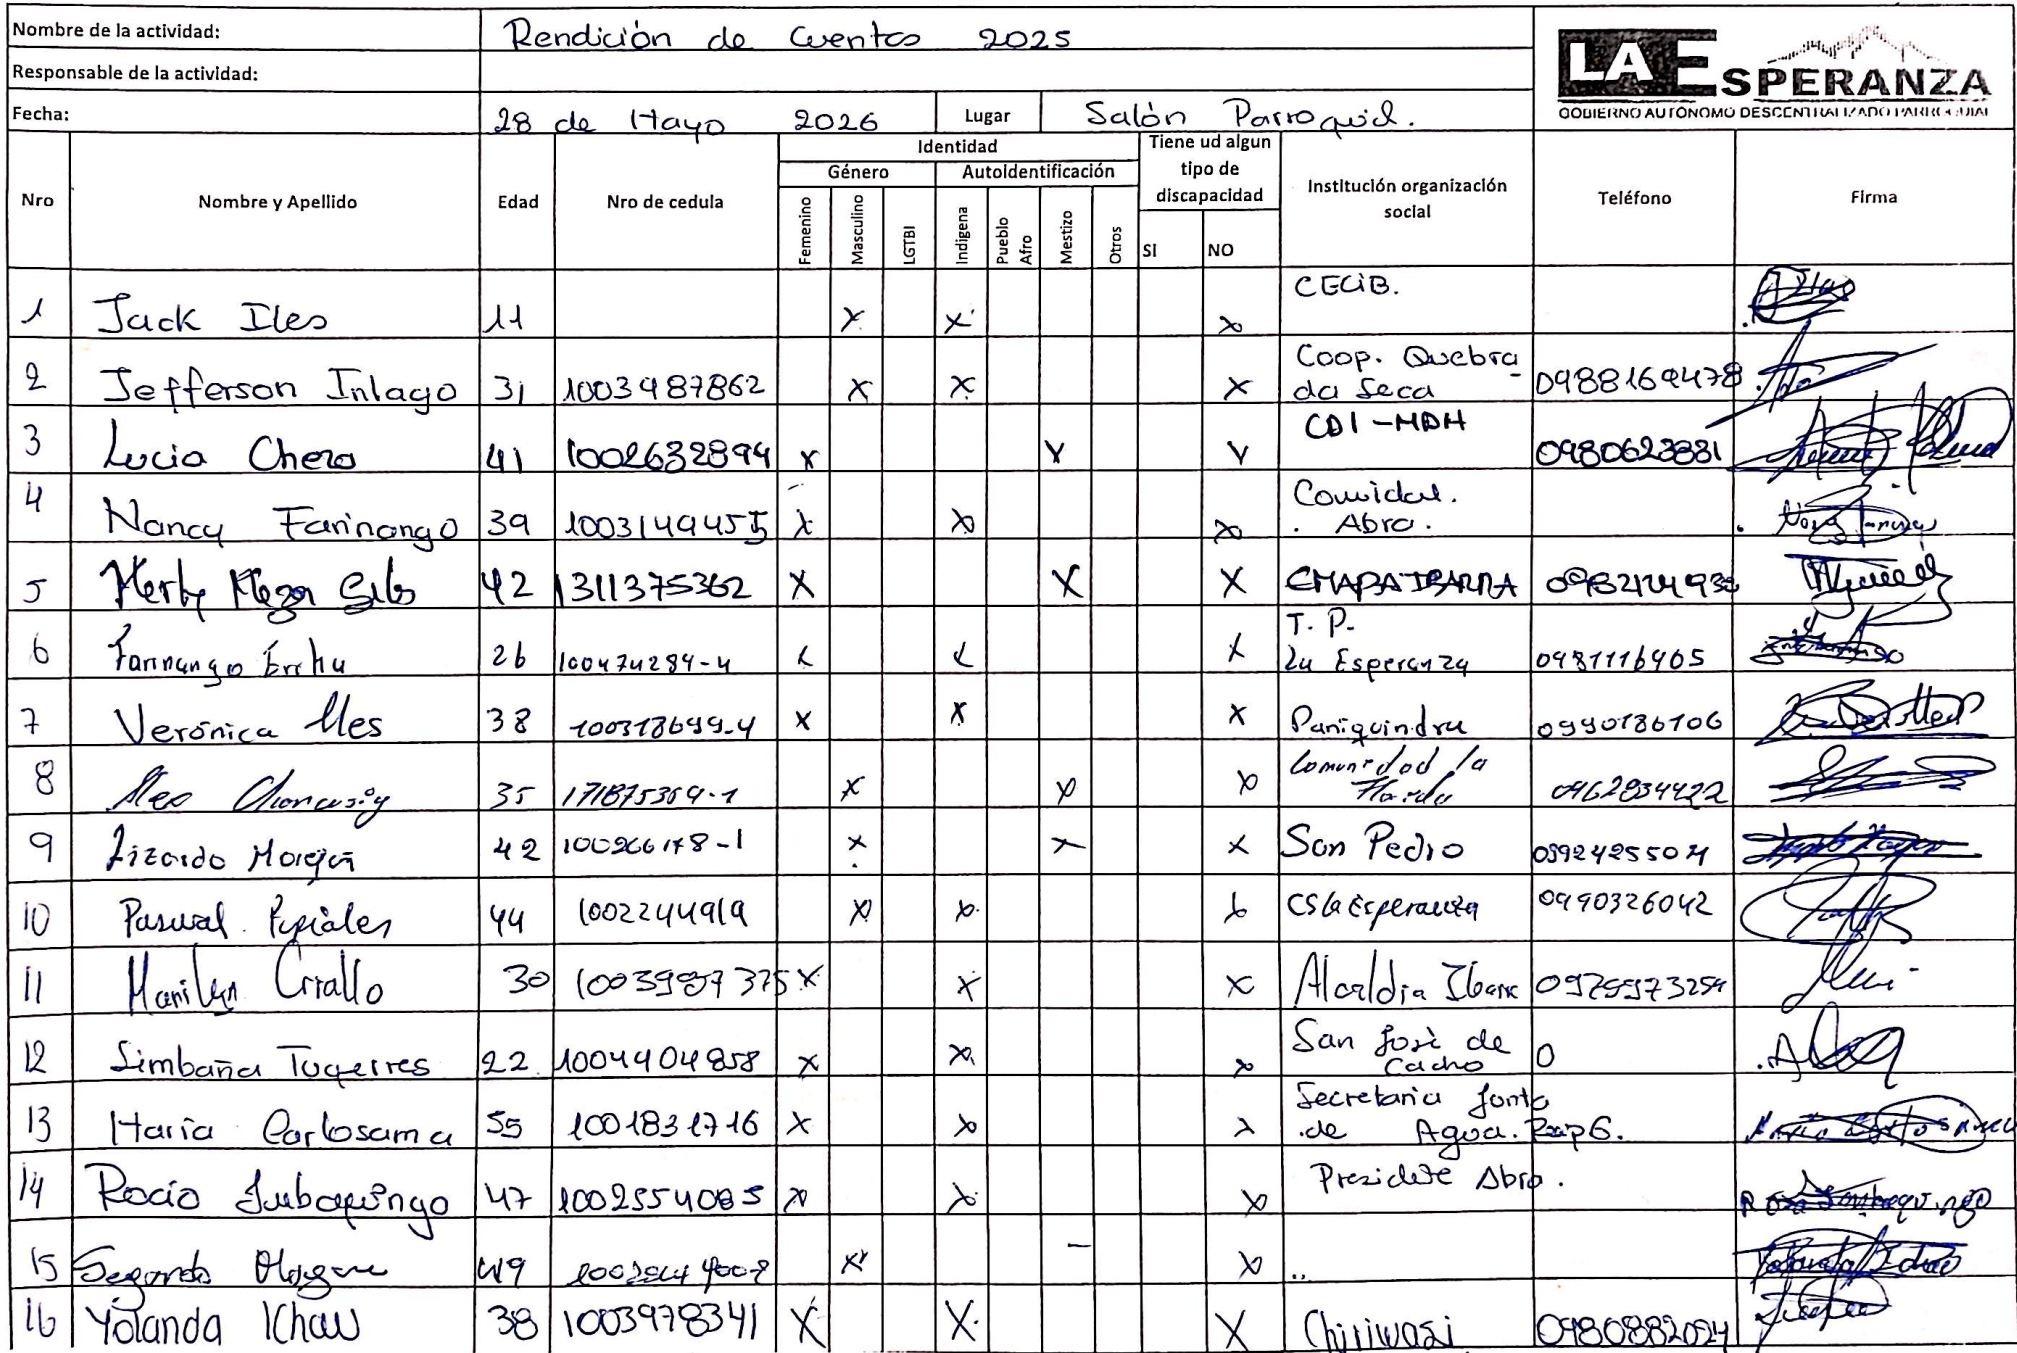 Nombre de la actividad: Rendición de Cuentas 2025
Responsable de la actividad:
Fecha: 28 de Mayo 2026 Lugar Salón Parroquial.
LA ESPERANZA
GOBIERNO AUTÓNOMO DESCENTRALIZADO PARROQUIAL
Nro Nombre y Apellido Edad Nro de cedula Identidad Género Femenino Masculino LGTBI Autoidentificación Indigena Pueblo Afro Mestizo Otros Tiene ud algun tipo de discapacidad SI NO Institución organización social Teléfono Firma
1 Jack Iles 11 X X X CECIB.
2 Jefferson Inlago 31 1003487862 X X X Coop. Quebrada Seca 0988169478
3 Lucia Chero 41 1002632894 X X X CDI-MDH 0980623881
4 Nancy Farinango 39 1003149455 X X X Comidad. Abra.
5 42 1311375362 X X X 
6 Farinango 26 100474284-4 X X X T. P. La Esperanza 0981116405
7 Verónica Iles 38 100318699-4 X X X Paniquindra 0990186106
8 35 171875364-1 X X X Comunidad la Florida 0962834422
9 Lizardo 42 X X X San Pedro 0592425504
10 Pascual Pupiales 44 1002244919 X X X CS la Esperanza 0990326042
11 Marilyn Criollo 30 1003997375 X X X Alcaldia Ibarra
12 Simbaña Tuquerres 22 1004404858 X X X San José de Cacho 0
13 Maria Carlosama 55 1001831716 X X X Secretaria Junta de Agua.
14 Rocio 47 1002554085 X X X Presidete Abra.
15 Segundo 49 X - X
16 Yolanda 38 1003978341 X X X Chiriwasi 0980882024